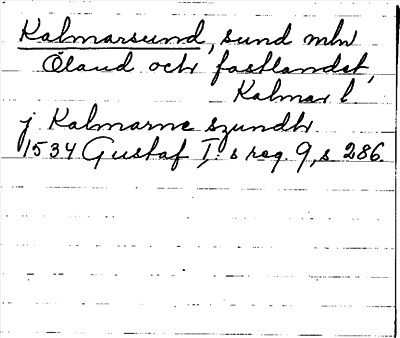 Kalmarsund, sund mln
Öland och fastlandet,
Kalmar l.
j Kalmarne szundh
1534 Gustaf I:s reg. 9, s 286.